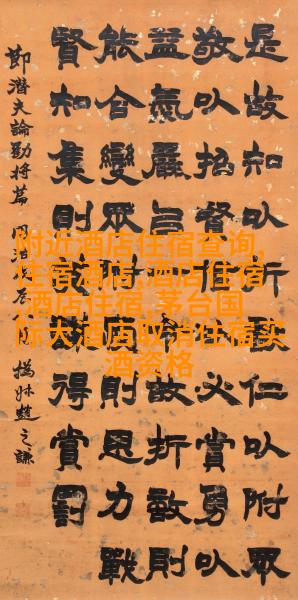 附近酒店住宿查询,
住宿酒店,酒店住宿
,酒店住宿,茅台国
际大酒店取消住宿买
酒资格
是故知以敵仁以附眾
敬以招賢以必賞勇以
益氣嚴令故折敵則
能合變眾附則恩力戰
賢知集則得賞罰
節潛夫論勸將篇 同治 撝叔趙之謙